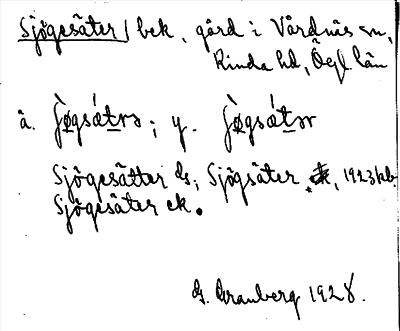 Sjögesäter, bek., gård i Vårdnäs sn,
Kinda hd, Ögl. län
ä. fö̀gsǽtrə; y. fö̀gsǽtər
Sjögesätter ds; Sjögsäter, 1923 kb.
Sjögesäter ek.
G. Granberg 1928.